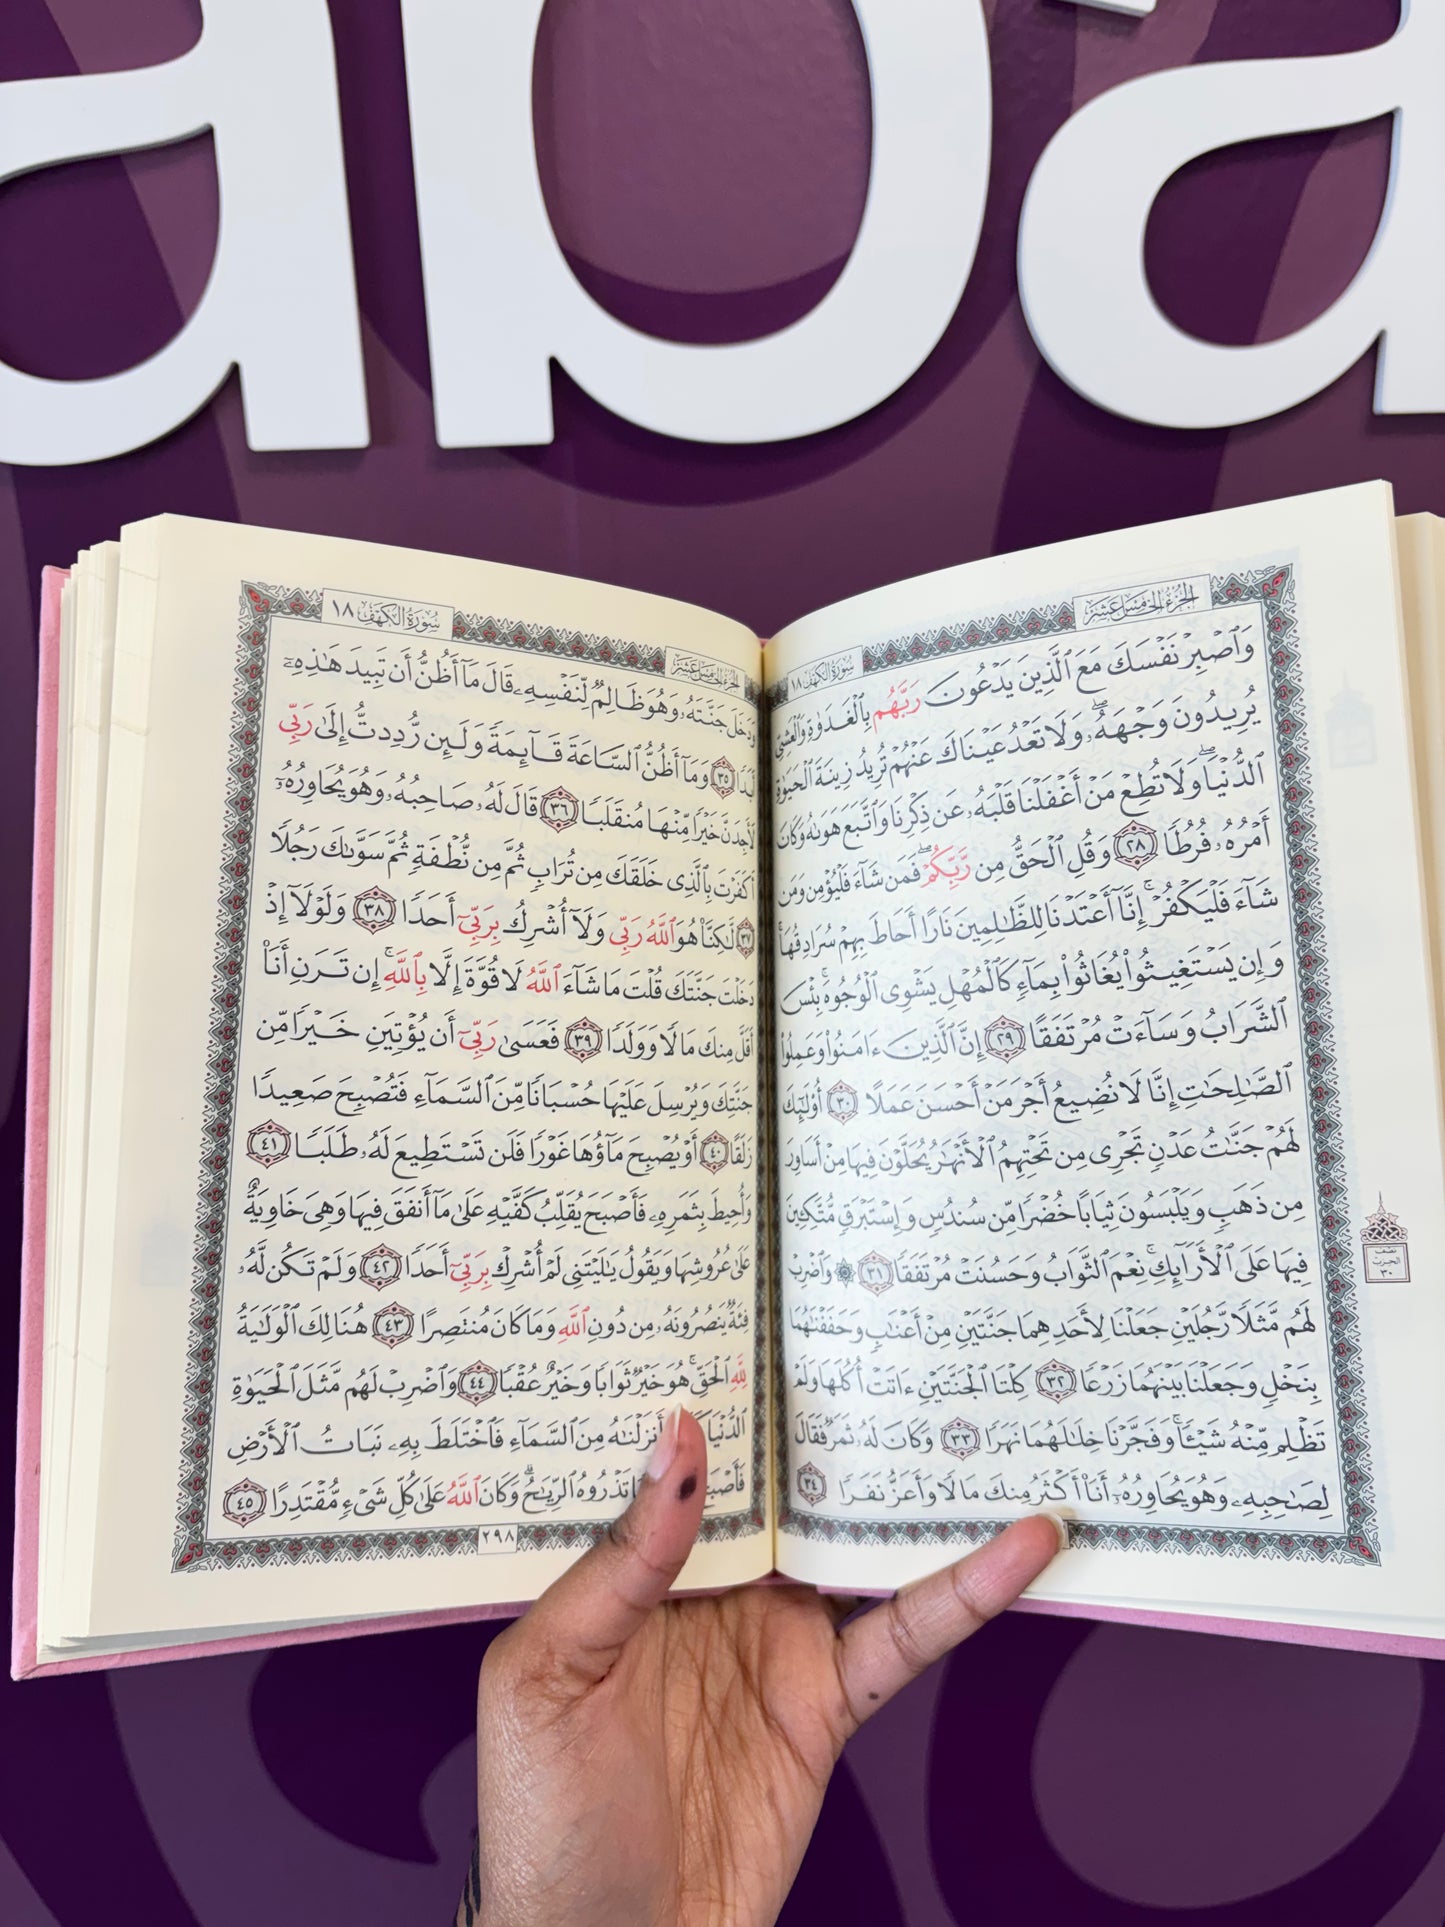 aba
الجزء الخامس عشر
سورة الكهف ١٨
وَٱصۡبِرۡ نَفۡسَكَ مَعَ ٱلَّذِينَ يَدۡعُونَ رَبَّهُم بِٱلۡغَدَوٰةِ وَٱلۡعَشِيِّ
يُرِيدُونَ وَجۡهَهُۥۖ وَلَا تَعۡدُ عَيۡنَاكَ عَنۡهُمۡ تُرِيدُ زِينَةَ ٱلۡحَيَوٰةِ
ٱلدُّنۡيَاۖ وَلَا تُطِعۡ مَنۡ أَغۡفَلۡنَا قَلۡبَهُۥ عَن ذِكۡرِنَا وَٱتَّبَعَ هَوَىٰهُ وَكَانَ
أَمۡرُهُۥ فُرُطٗا ٢٨ وَقُلِ ٱلۡحَقُّ مِن رَّبِّكُمۡۖ فَمَن شَآءَ فَلۡيُؤۡمِن وَمَن
شَآءَ فَلۡيَكۡفُرۡۚ إِنَّآ أَعۡتَدۡنَا لِلظَّٰلِمِينَ نَارًا أَحَاطَ بِهِمۡ سُرَادِقُهَاۚ
وَإِن يَسۡتَغِيثُواْ يُغَاثُواْ بِمَآءٖ كَٱلۡمُهۡلِ يَشۡوِي ٱلۡوُجُوهَۚ بِئۡسَ
ٱلشَّرَابُ وَسَآءَتۡ مُرۡتَفَقًا ٢٩ إِنَّ ٱلَّذِينَ ءَامَنُواْ وَعَمِلُواْ
ٱلصَّٰلِحَٰتِ إِنَّا لَا نُضِيعُ أَجۡرَ مَنۡ أَحۡسَنَ عَمَلًا ٣٠ أُوْلَٰٓئِكَ
لَهُمۡ جَنَّٰتُ عَدۡنٖ تَجۡرِي مِن تَحۡتِهِمُ ٱلۡأَنۡهَٰرُ يُحَلَّوۡنَ فِيهَا مِنۡ أَسَاوِرَ
مِن ذَهَبٖ وَيَلۡبَسُونَ ثِيَابًا خُضۡرٗا مِّن سُندُسٖ وَإِسۡتَبۡرَقٖ مُّتَّكِـِٔينَ
فِيهَا عَلَى ٱلۡأَرَآئِكِۚ نِعۡمَ ٱلثَّوَابُ وَحَسُنَتۡ مُرۡتَفَقٗا ٣١ ۞ وَٱضۡرِبۡ
لَهُم مَّثَلٗا رَّجُلَيۡنِ جَعَلۡنَا لِأَحَدِهِمَا جَنَّتَيۡنِ مِنۡ أَعۡنَٰبٖ وَحَفَفۡنَٰهُمَا
بِنَخۡلٖ وَجَعَلۡنَا بَيۡنَهُمَا زَرۡعٗا ٣٢ كِلۡتَا ٱلۡجَنَّتَيۡنِ ءَاتَتۡ أُكُلَهَا وَلَمۡ
تَظۡلِم مِّنۡهُ شَيۡـٔٗاۚ وَفَجَّرۡنَا خِلَٰلَهُمَا نَهَرٗا ٣٣ وَكَانَ لَهُۥ ثَمَرٞ فَقَالَ
لِصَٰحِبِهِۦ وَهُوَ يُحَاوِرُهُۥٓ أَنَا۠ أَكۡثَرُ مِنكَ مَالٗا وَأَعَزُّ نَفَرٗا ٣٤
نصف
الحزب
٣٠
الجزء الخامس عشر
سورة الكهف ١٨
وَدَخَلَ جَنَّتَهُۥ وَهُوَ ظَالِمٞ لِّنَفۡسِهِۦ قَالَ مَآ أَظُنُّ أَن تَبِيدَ هَٰذِهِۦٓ
أَبَدٗا ٣٥ وَمَآ أَظُنُّ ٱلسَّاعَةَ قَآئِمَةٗ وَلَئِن رُّدِدتُّ إِلَىٰ رَبِّي
لَأَجِدَنَّ خَيۡرٗا مِّنۡهَا مُنقَلَبٗا ٣٦ قَالَ لَهُۥ صَاحِبُهُۥ وَهُوَ يُحَاوِرُهُۥٓ
أَكَفَرۡتَ بِٱلَّذِي خَلَقَكَ مِن تُرَابٖ ثُمَّ مِن نُّطۡفَةٖ ثُمَّ سَوَّىٰكَ رَجُلٗا
٣٧ لَّٰكِنَّا۠ هُوَ ٱللَّهُ رَبِّي وَلَآ أُشۡرِكُ بِرَبِّيٓ أَحَدٗا ٣٨ وَلَوۡلَآ إِذۡ
دَخَلۡتَ جَنَّتَكَ قُلۡتَ مَا شَآءَ ٱللَّهُ لَا قُوَّةَ إِلَّا بِٱللَّهِۚ إِن تَرَنِ أَنَا۠
أَقَلَّ مِنكَ مَالٗا وَوَلَدٗا ٣٩ فَعَسَىٰ رَبِّيٓ أَن يُؤۡتِيَنِ خَيۡرٗا مِّن
جَنَّتِكَ وَيُرۡسِلَ عَلَيۡهَا حُسۡبَانٗا مِّنَ ٱلسَّمَآءِ فَتُصۡبِحَ صَعِيدٗا
زَلَقًا ٤٠ أَوۡ يُصۡبِحَ مَآؤُهَا غَوۡرٗا فَلَن تَسۡتَطِيعَ لَهُۥ طَلَبٗا ٤١
وَأُحِيطَ بِثَمَرِهِۦ فَأَصۡبَحَ يُقَلِّبُ كَفَّيۡهِ عَلَىٰ مَآ أَنفَقَ فِيهَا وَهِيَ خَاوِيَةٌ
عَلَىٰ عُرُوشِهَا وَيَقُولُ يَٰلَيۡتَنِي لَمۡ أُشۡرِكۡ بِرَبِّيٓ أَحَدٗا ٤٢ وَلَمۡ تَكُن لَّهُۥ
فِئَةٞ يَنصُرُونَهُۥ مِن دُونِ ٱللَّهِ وَمَا كَانَ مُنتَصِرًا ٤٣ هُنَالِكَ ٱلۡوَلَٰيَةُ
لِلَّهِ ٱلۡحَقِّۚ هُوَ خَيۡرٞ ثَوَابٗا وَخَيۡرٌ عُقۡبٗا ٤٤ وَٱضۡرِبۡ لَهُم مَّثَلَ ٱلۡحَيَوٰةِ
ٱلدُّنۡيَا أَنزَلۡنَٰهُ مِنَ ٱلسَّمَآءِ فَٱخۡتَلَطَ بِهِۦ نَبَاتُ ٱلۡأَرۡضِ
تَذۡرُوهُ ٱلرِّيَٰحُۗ وَكَانَ ٱللَّهُ عَلَىٰ كُلِّ شَيۡءٖ مُّقۡتَدِرًا ٤٥
٢٩٨